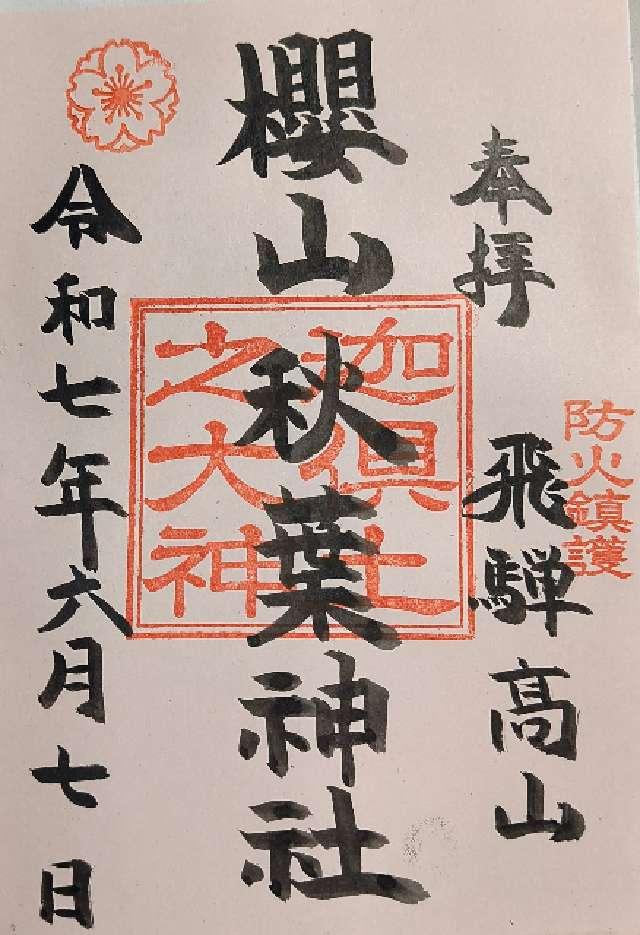 防火鎮護
奉拝
飛騨高山
櫻山秋葉神社
迦倶土
之大神
令和七年六月七日